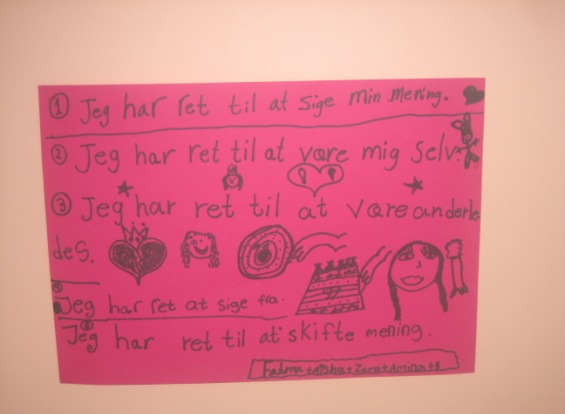 ① Jeg har ret til at sige min mening.
② Jeg har ret til at være mig selv.
③ Jeg har ret til at være anderle
des.
Jeg har ret at sige fra.
Jeg har ret til at skifte mening.
Fatma + Aisha + Zara + Amina